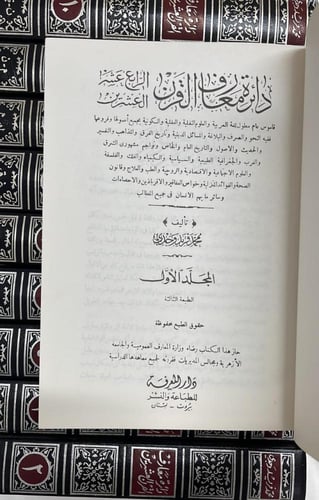 دائرة معارف القرن
الرابع عشر
العشرين
قاموس عام مطول للغة العربية والعلوم النقلية والعقلية والكونية بجميع أصولها وفروعها
ففيه النحو والصرف والبلاغة والمسائل الدينية وتاريخ الفرق والمذاهب والتفسير
والحديث والأصول والتاريخ العام والخاص وتراجم مشهوري الشرق
والغرب والجغرافية الطبيعية والسياسية والكيمياء والفلك والفلسفة
والعلوم الاجتماعية والاقتصادية والروحية والطب والعلاج وقانون
الصحة والفوائد المنزلية وخواص العقاقير والأقرباذين والاحصاءات
وسائر ما يهم الانسان في جميع المطالب
﴿ تأليف ﴾
محمد فريد وجدي
المجلد الأول
الطبعة الثالثة
حقوق الطبع محفوظة
حاز هذا الكتاب رضاء وزارة المعارف العمومية والجامعة
الأزهرية ومجالس المديريات فقررته لجميع معاهدها الدراسية
دار المعرفة
للطباعة والنشر
بيروت - لبنان
١٠
٢
دائرة معارف
القرن العشرين